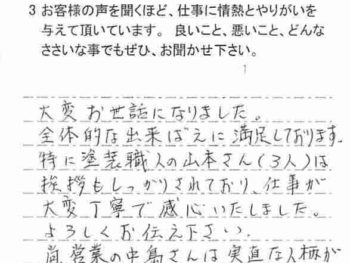 3 お客様の声を聞くほど、仕事に情熱とやりがいを
与えて頂いています。良いこと、悪いこと、どんな
ささいな事でもぜひ、お聞かせ下さい。
大変お世話になりました。
全体的な出来ばえに満足しております。
特に塗装職人の山本さん(3人)は
挨拶もしっかりされており、仕事が
大変丁寧で感心いたしました。
よろしくお伝え下さい。
尚営業の中島さんは実直な人柄が